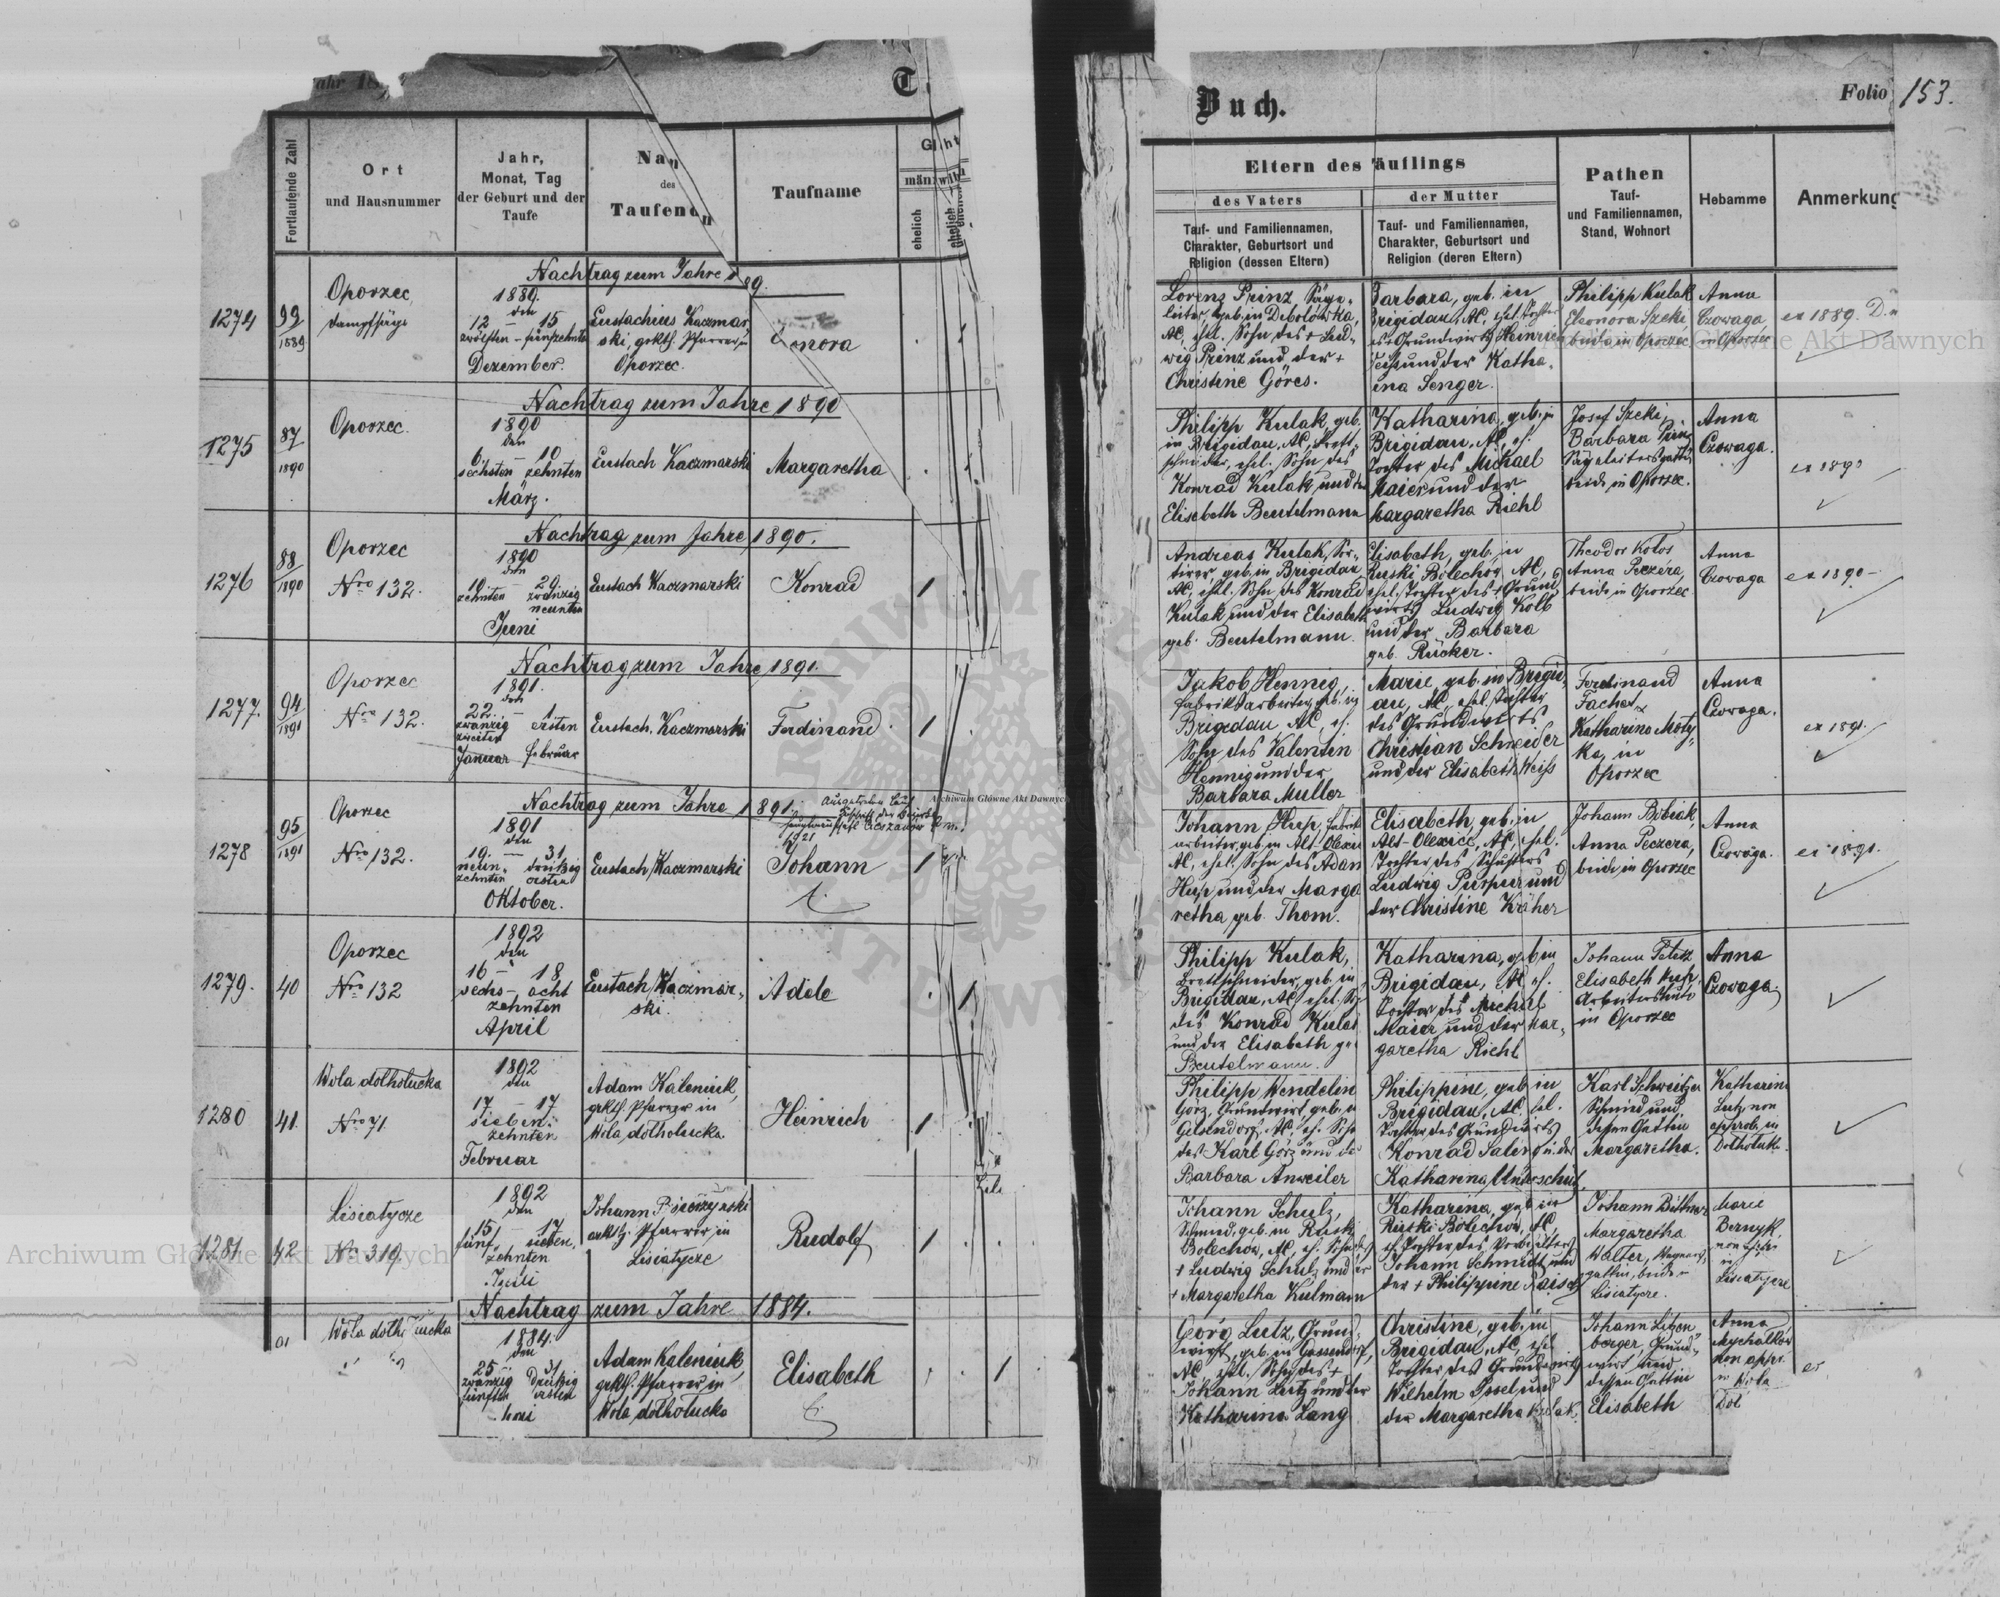 Jahr 18
T
Buch.
Folio 153.
Fortlaufende Zahl
Ort
und Hausnummer
Jahr,
Monat, Tag
der Geburt und der
Taufe
Nam
des
Taufenden
Taufname
männl
ehelich
Eltern des Täuflings
des Vaters
Tauf- und Familiennamen,
Charakter, Geburtsort und
Religion (dessen Eltern)
der Mutter
Tauf- und Familiennamen,
Charakter, Geburtsort und
Religion (deren Eltern)
Pathen
Tauf-
und Familiennamen,
Stand, Wohnort
Hebamme
Anmerkung
Nachtrag zum Jahre 1889.
1274
99
1889
Oporzec
Dampfsäge
1889.
den
12 – 15
zwölften – fünfzehnten
Dezember.
Eustachius Kaczmar-
ski, grkth. Pfarrer in
Oporzec.
Eleonora
Lorenz Prinz, Säge-
leiter, geb. in Debolówka,
AC, ehel. Sohn des + Lud-
wig Prinz und der +
Christine Göres.
Barbara, geb. in
Brigidau, AC, ehel. Tochter
des Grundwirts Heinrich
und der Katha-
rina Senger.
Philipp Kulak
Eleonora Szeki,
beide in Oporzec
Anna
Czowaga,
in Oporzec
ex 1889.
Nachtrag zum Jahre 1890
1275
87
1890
Oporzec.
1890
den
6 – 10
sechsten zehnten
März.
Eustach Kaczmarski
Margaretha
Philipp Kulak, geb.
in Brigidau, AC, Brett-
schneider, ehel. Sohn des
Konrad Kulak und der
Elisabeth Beutelmann
Katharina, geb. in
Brigidau, AC, eh.
Tochter des Michael
Maier und der
Margaretha Riehl
Josef Szeki,
Barbara Prinz
Sägeleitersgattin
beide in Oporzec.
Anna
Czowaga.
ex 1890
Nachtrag zum Jahre 1890.
1276
88
1890
Oporzec
Nro 132.
1890
den
10. 29.
zehnten zwanzig
neunten
Juni
Eustach Kaczmarski
Konrad
1
Andreas Kulak, Sor-
tirer, geb. in Brigidau
AC, ehel. Sohn des Konrad
Kulak und der Elisabeth
geb. Beutelmann.
Elisabeth, geb. in
Ruski Bolechów, AC,
ehel. Tochter des + Grund-
wirts Ludwig Kolb
und der Barbara
geb. Rücker.
Theodor Kolos
Anna Peczera,
beide in Oporzec
Anna
Czowaga
ex 1890 –
Nachtrag zum Jahre 1891.
1277.
94
1891
Oporzec
Nro 132.
1891.
den
22. – 1.
zwanzig ersten
zweiten
Januar Februar
Eustach. Kaczmarski
Ferdinand
1
Jakob Hennig,
Fabriksarbeiter, geb. in
Brigidau AC, eh.
Sohn des Valentin
Hennig und der
Barbara Muller
Marie, geb. in Brigid-
au, AC, ehel. Tochter
des Grundwirts
Christian Schneider
und der Elisabeth Weiss
Ferdinand
Katharina Moty-
ka, in
Oporzec
Anna
Czowaga.
ex 1891.
Nachtrag zum Jahre 1891.
Ausgetreten laut
1921
1278
95
1891
Oporzec
Nro 132.
1891
den
19. – 31.
neun- dreißig
zehnten ersten
Oktober.
Eustach Kaczmarski
Johann
1
Johann Hup, Fabriks-
arbeiter, geb. in Alt-Olexi
AC, ehel. Sohn des Adam
Hup und der Marga
retha, geb. Thom.
Elisabeth, geb. in
Alt-Olexice, AC, ehel.
Tochter des Schusters
Ludwig Purpur und
der Christine Kräher
Johann Bobiak,
Anna Peczera,
beide in Oporzec
Anna
Czowaga.
ex 1891.
1279.
40
Oporzec
Nro 132
1892
den
16 – 18
sechs – acht
zehnten
April
Eustach Kaczmar-
ski.
Adele
1
Philipp Kulak,
Brettschneider, geb. in
Brigidau, AC, ehel. So
des Konrad Kulak
und der Elisabeth ge
Beutelmann.
Katharina, geb. in
Brigidau, AC, eh.
Tochter des Michael
Maier und der Mar-
garetha Riehl
Johann
Elisabeth Hup,
Arbeitersleute
in Oporzec
Anna
Czowaga.
1280
41.
Wola dolholucka
Nro 71
1892
den
17 – 17
sieben-
zehnten
Februar
Adam Kaleniuk,
grkth. Pfarrer in
Wola dolholucka
Heinrich
1
Philipp Wendelin
Görz, Grundwirt, geb. in
Gelsendorf, AC, eh. Sohn
des Karl Görz und de
Barbara Anweiler
Philippine, geb. in
Brigidau, AC, ehel.
Tochter des Grundwirts
Konrad Saling u. der
Katharina Unterschütz
Karl Schweitzer
Schmied und
dessen Gattin
Margaretha.
Katharina
Lutz, non
approb. in
Dolholuk
1281
42
Lisiatycze
Nro 319.
1892
den
15. 17.
fünf- sieben-
zehnten
Juli
Johann
grkth. Pfarrer in
Lisiatycze
Rudolf
1
Johann Schulz,
Schmied, geb. in Ruski
Bolechów, AC, eh. Sohn des
+ Ludwig Schulz und der
+ Margaretha Kulmann
Katharina, geb. in
Ruski Bolechów, AC,
eh. Tochter des
Johann Schmidt und
der + Philippine
Johann Bittner
Margaretha
Walter, Wagners-
gattin, beide in
Lisiatycze.
Marie
Bernyk,
non
in
Lisiatycze
Nachtrag zum Jahre 1884.
Wola dolholucka
1884.
den
25. 31.
zwanzig dreißig
fünften ersten
Adam Kaleniuk,
grkth. Pfarrer in
Wola dolholucka
Elisabeth
1
Georg Lutz, Grund-
wirt, geb. in Gassendorf,
AC, ehel. Sohn des +
Johann Lutz und der
Katharina Lang
Christine, geb. in
Brigidau, AC, ehel.
Tochter des Grundwirts
Wilhelm Issel und
der Margaretha Kulak.
Johann
berger, Grund-
wirt und
dessen Gattin
Elisabeth
Anna
non appr.
in Wola
Dol
ex
Archiwum Główne Akt Dawnych
Archiwum Główne Akt Dawnych
Archiwum Główne Akt Dawnych